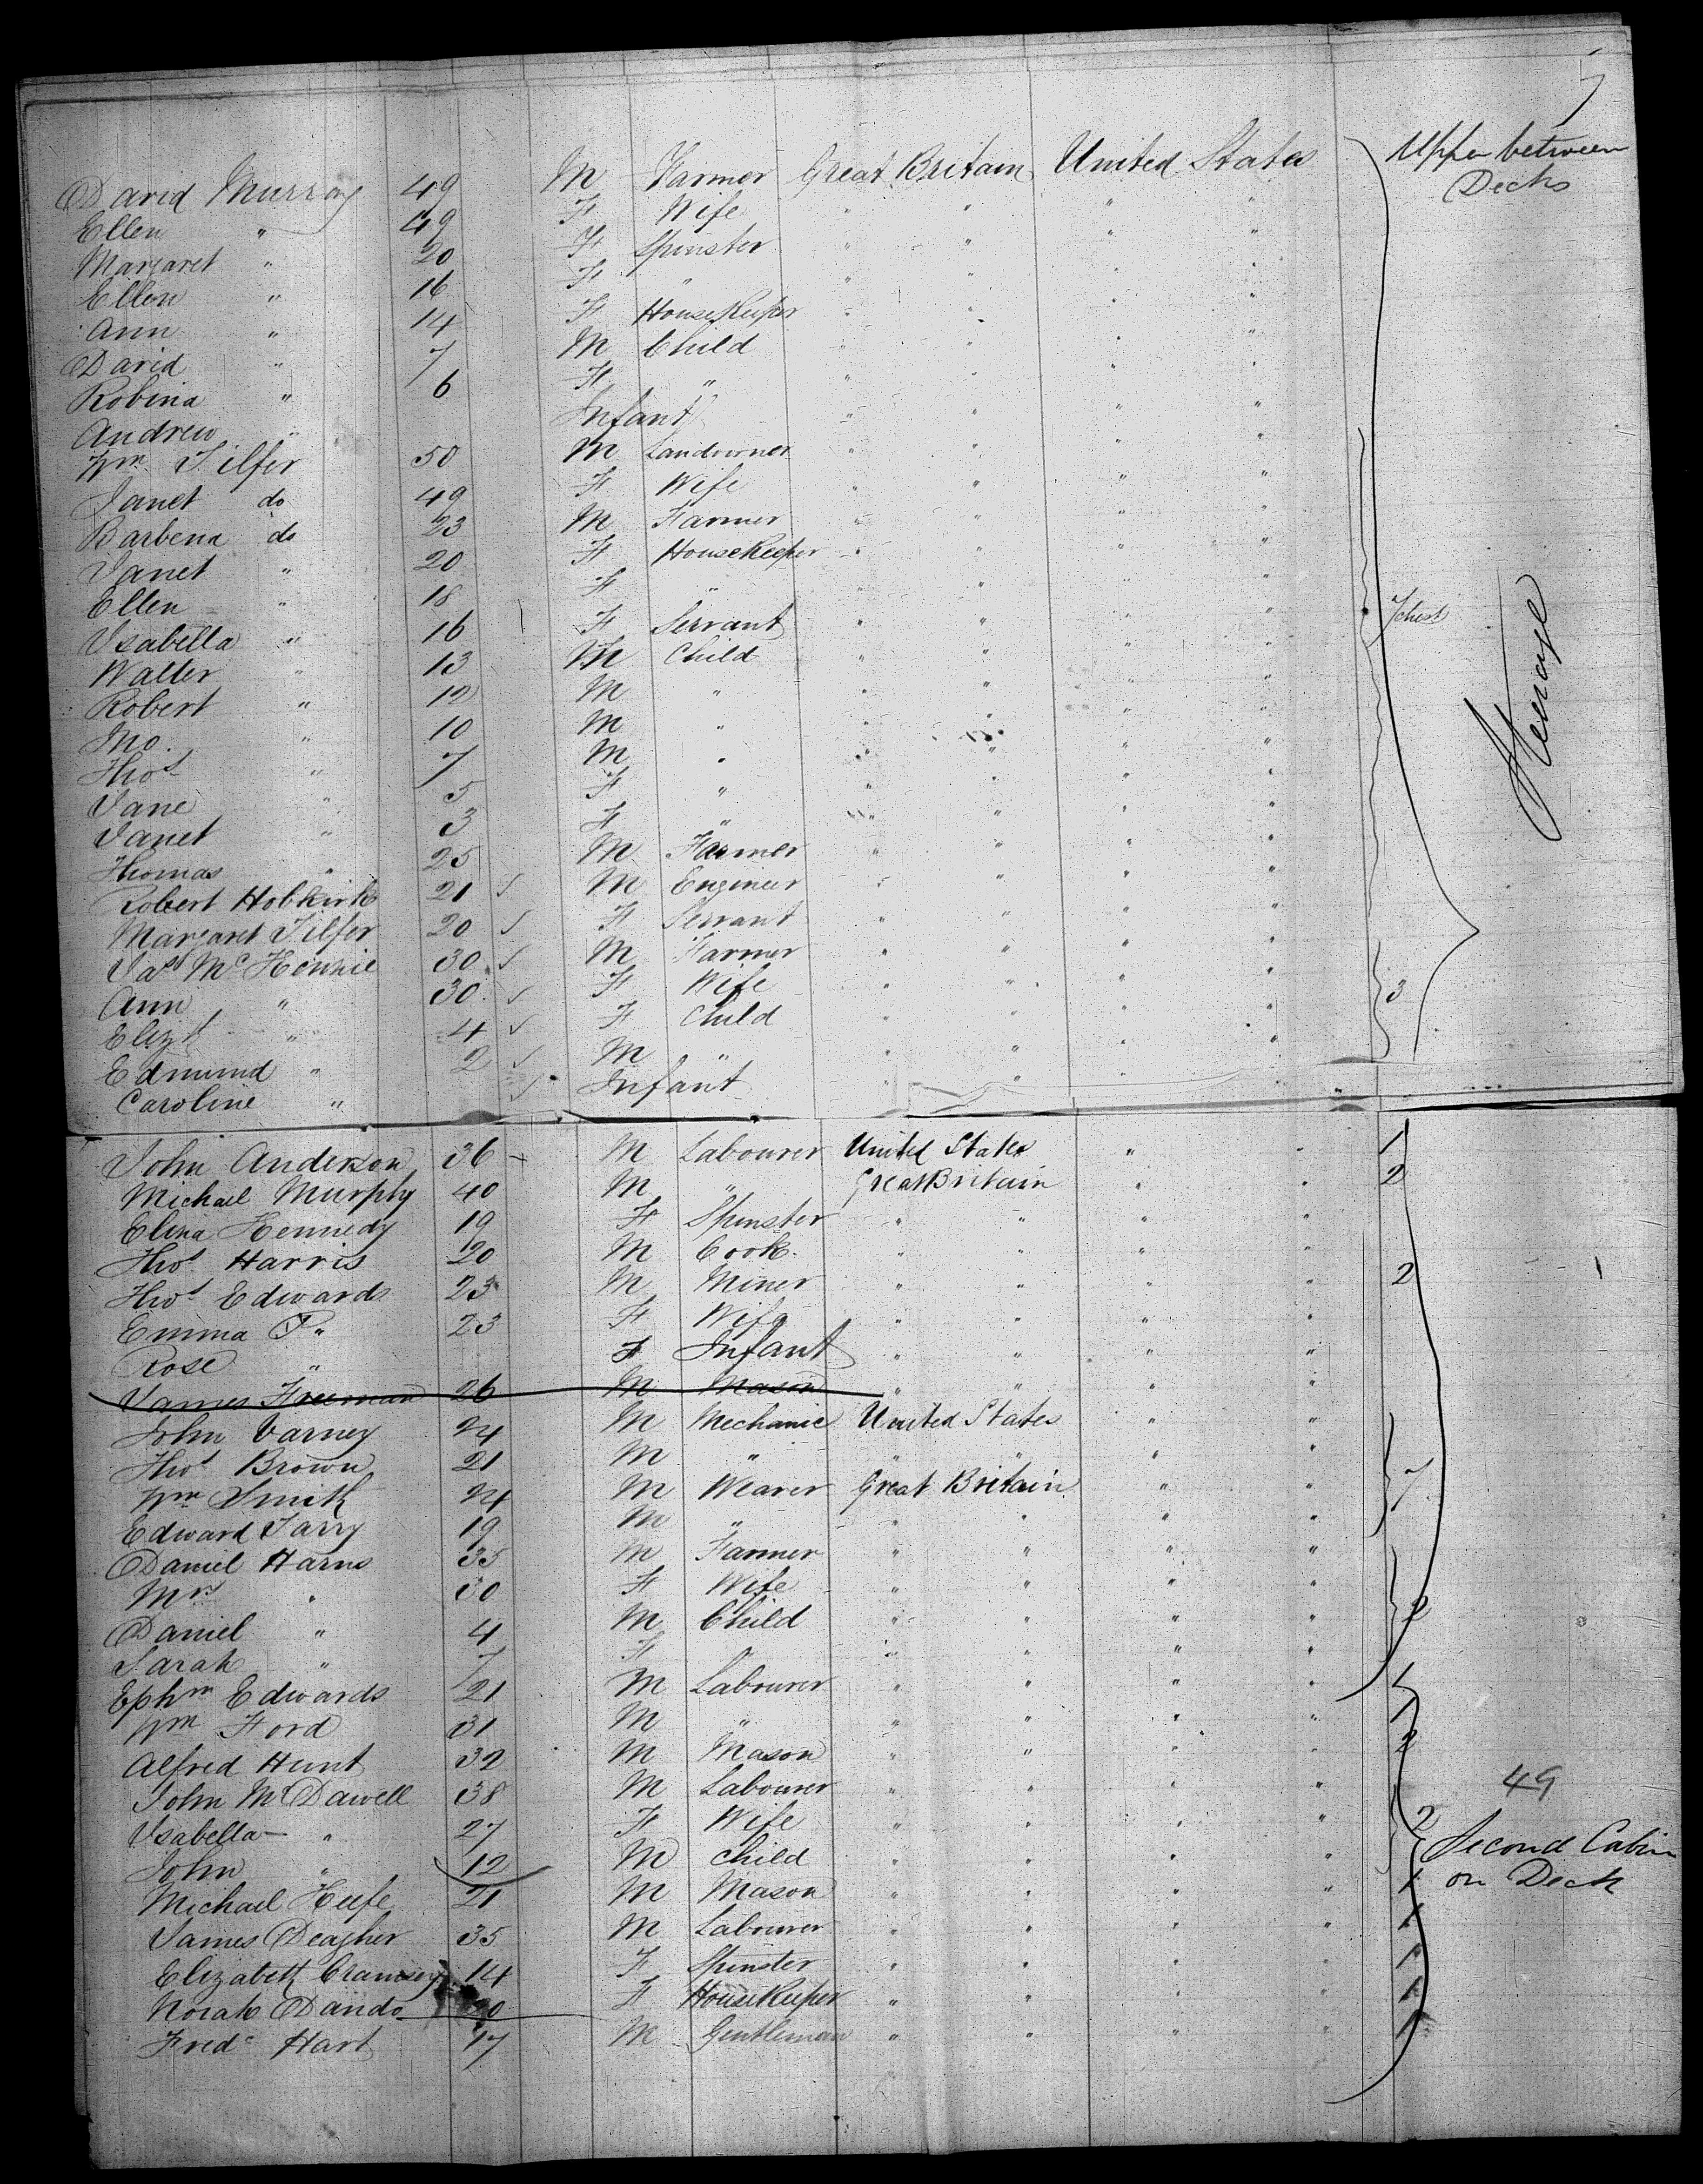 Upper between
Decks
David Murray 49 M Farmer Great Britain United States
Ellen " 49 F Wife " " " "
Margaret " 20 F Spinster " " " "
Ellen " 16 F " " " " "
Ann " 14 F HouseKeeper " " " "
David " 7 M Child " " " "
Robina " 6 F " " " " "
Andrew " Infant " " " "
Wm. Tilfer 50 M Landowner " " " "
Janet do 49 F Wife " " " "
Barbena do 23 M Farmer " " " "
Janet " 20 F HouseKeeper " " " "
Ellen " 18 F " " " " "
Isabella " 16 F Servant " " " " 7 chests
Walter " 13 M Child " " " "
Robert " 12 M " " " " "
Jno. " 10 M " " " " "
Thos " 7 M " " " " "
Jane " 5 F " " " " "
Janet " 3 F " " " " "
Thomas " 25 M Farmer " " " "
Robert Hobkirk 21 M Engineer " " " "
Margaret Tilfer 20 F Servant " " " "
Jas Mc Kennie 30 M Farmer " " " "
Ann " 30 F Wife " " " " 3
Elizt " 4 F Child " " " "
Edmund " 2 M " " " " "
Caroline " Infant " " " "
Steerage
John Anderson 36 M Labourer United States " " 1
Michael Murphy 40 M " Great Britain " " 2
Eliza Kennedy 19 F Spinster " " " "
Thos Harris 20 M Cook " " " "
Thos Edwards 23 M Miner " " " " 2
Emma P " 23 F Wife " " " "
Rose " F Infant " " " "
James Freeman 26 M Mason " " " "
John Varney 24 M Mechanic United States " "
Thos Brown 21 M " " " " "
Wm Smith 24 M Weaver Great Britain " " 7
Edward Tarry 19 M " " " " "
Daniel Harns 35 M Farmer " " " "
Mrs " 30 F Wife " " " "
Daniel " 4 M Child " " " " 2
Sarah " 7 F " " " " "
Ephm Edwards 21 M Labourer " " " " 1
Wm Ford 31 M " " " " " 1
Alfred Hunt 32 M Mason " " " " 2
John McDawell 38 M Labourer " " " "
49
Isabella " 27 F Wife " " " " 2
John " 12 M Child " " " "
Second Cabin
on Deck
Michael Keefe 21 M Mason " " " " 1
James Deagher 35 M Labourer " " " " 1
Elizabeth Cramsey 14 F Spinster " " " " 1
Norah Dando 20 F HouseKeeper " " " " 1
Fredc Hart 17 M Gentleman " " " " 1